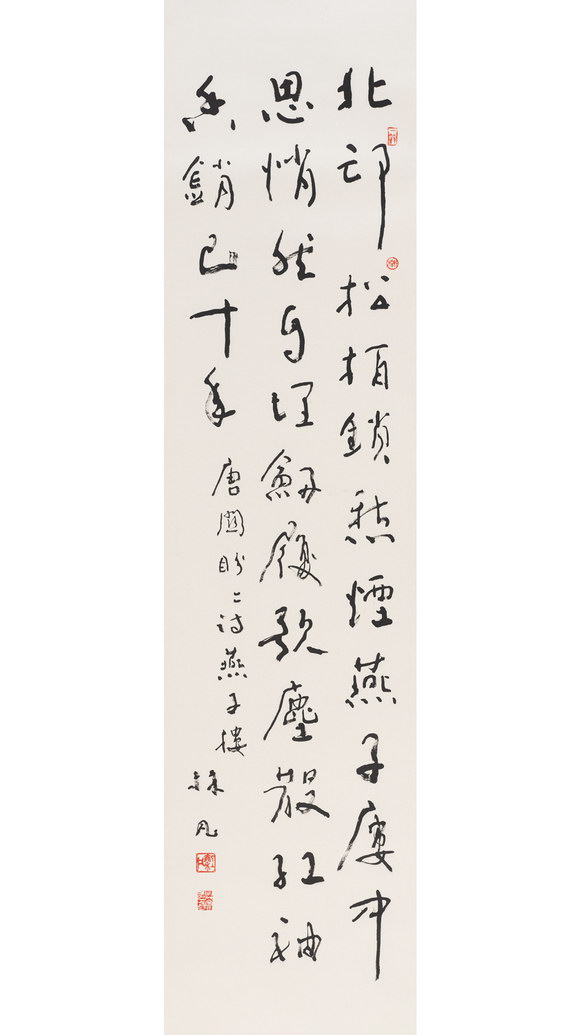 北邙松柏鎖愁煙燕子廔中
思悄然自埋劔履歌塵散紅袖
香銷已十年
唐關盼〻诗燕子樓
林凡